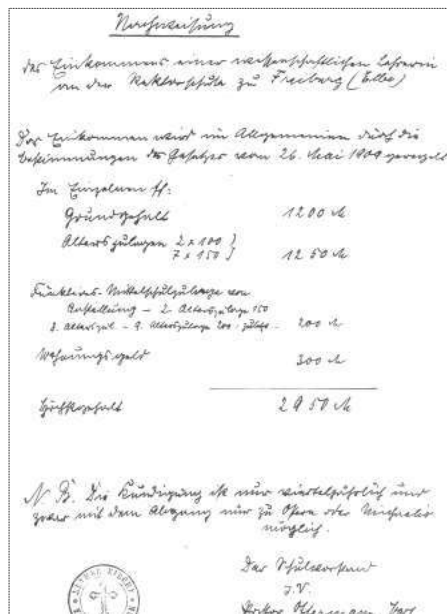 Nachweisung
des Einkommens einer wissenschaftlichen Lehrerin
an der Rektorschule zu Freiburg (Elbe)
Das Einkommen wird im Allgemeinen durch die
Bestimmungen des Gesetzes vom 26. Mai 1909 geregelt
Im Einzelnen
Grundgehalt 1200 M
Alterszulagen 2 x 100 }
7 x 150 } 1250 M
Mittelschulzulage von
Anstellung – 2. Alterszulage 150
3. – 9. Alterszulage 200 200 M
Wohnungsgeld 300 M
Höchstgehalt 2950 M
N. B. Die Kündigung ist nur vierteljährlich und
zwar mit dem Abgang nur zu Ostern oder Michaelis
möglich.
Der Schulvorstand
J. V.